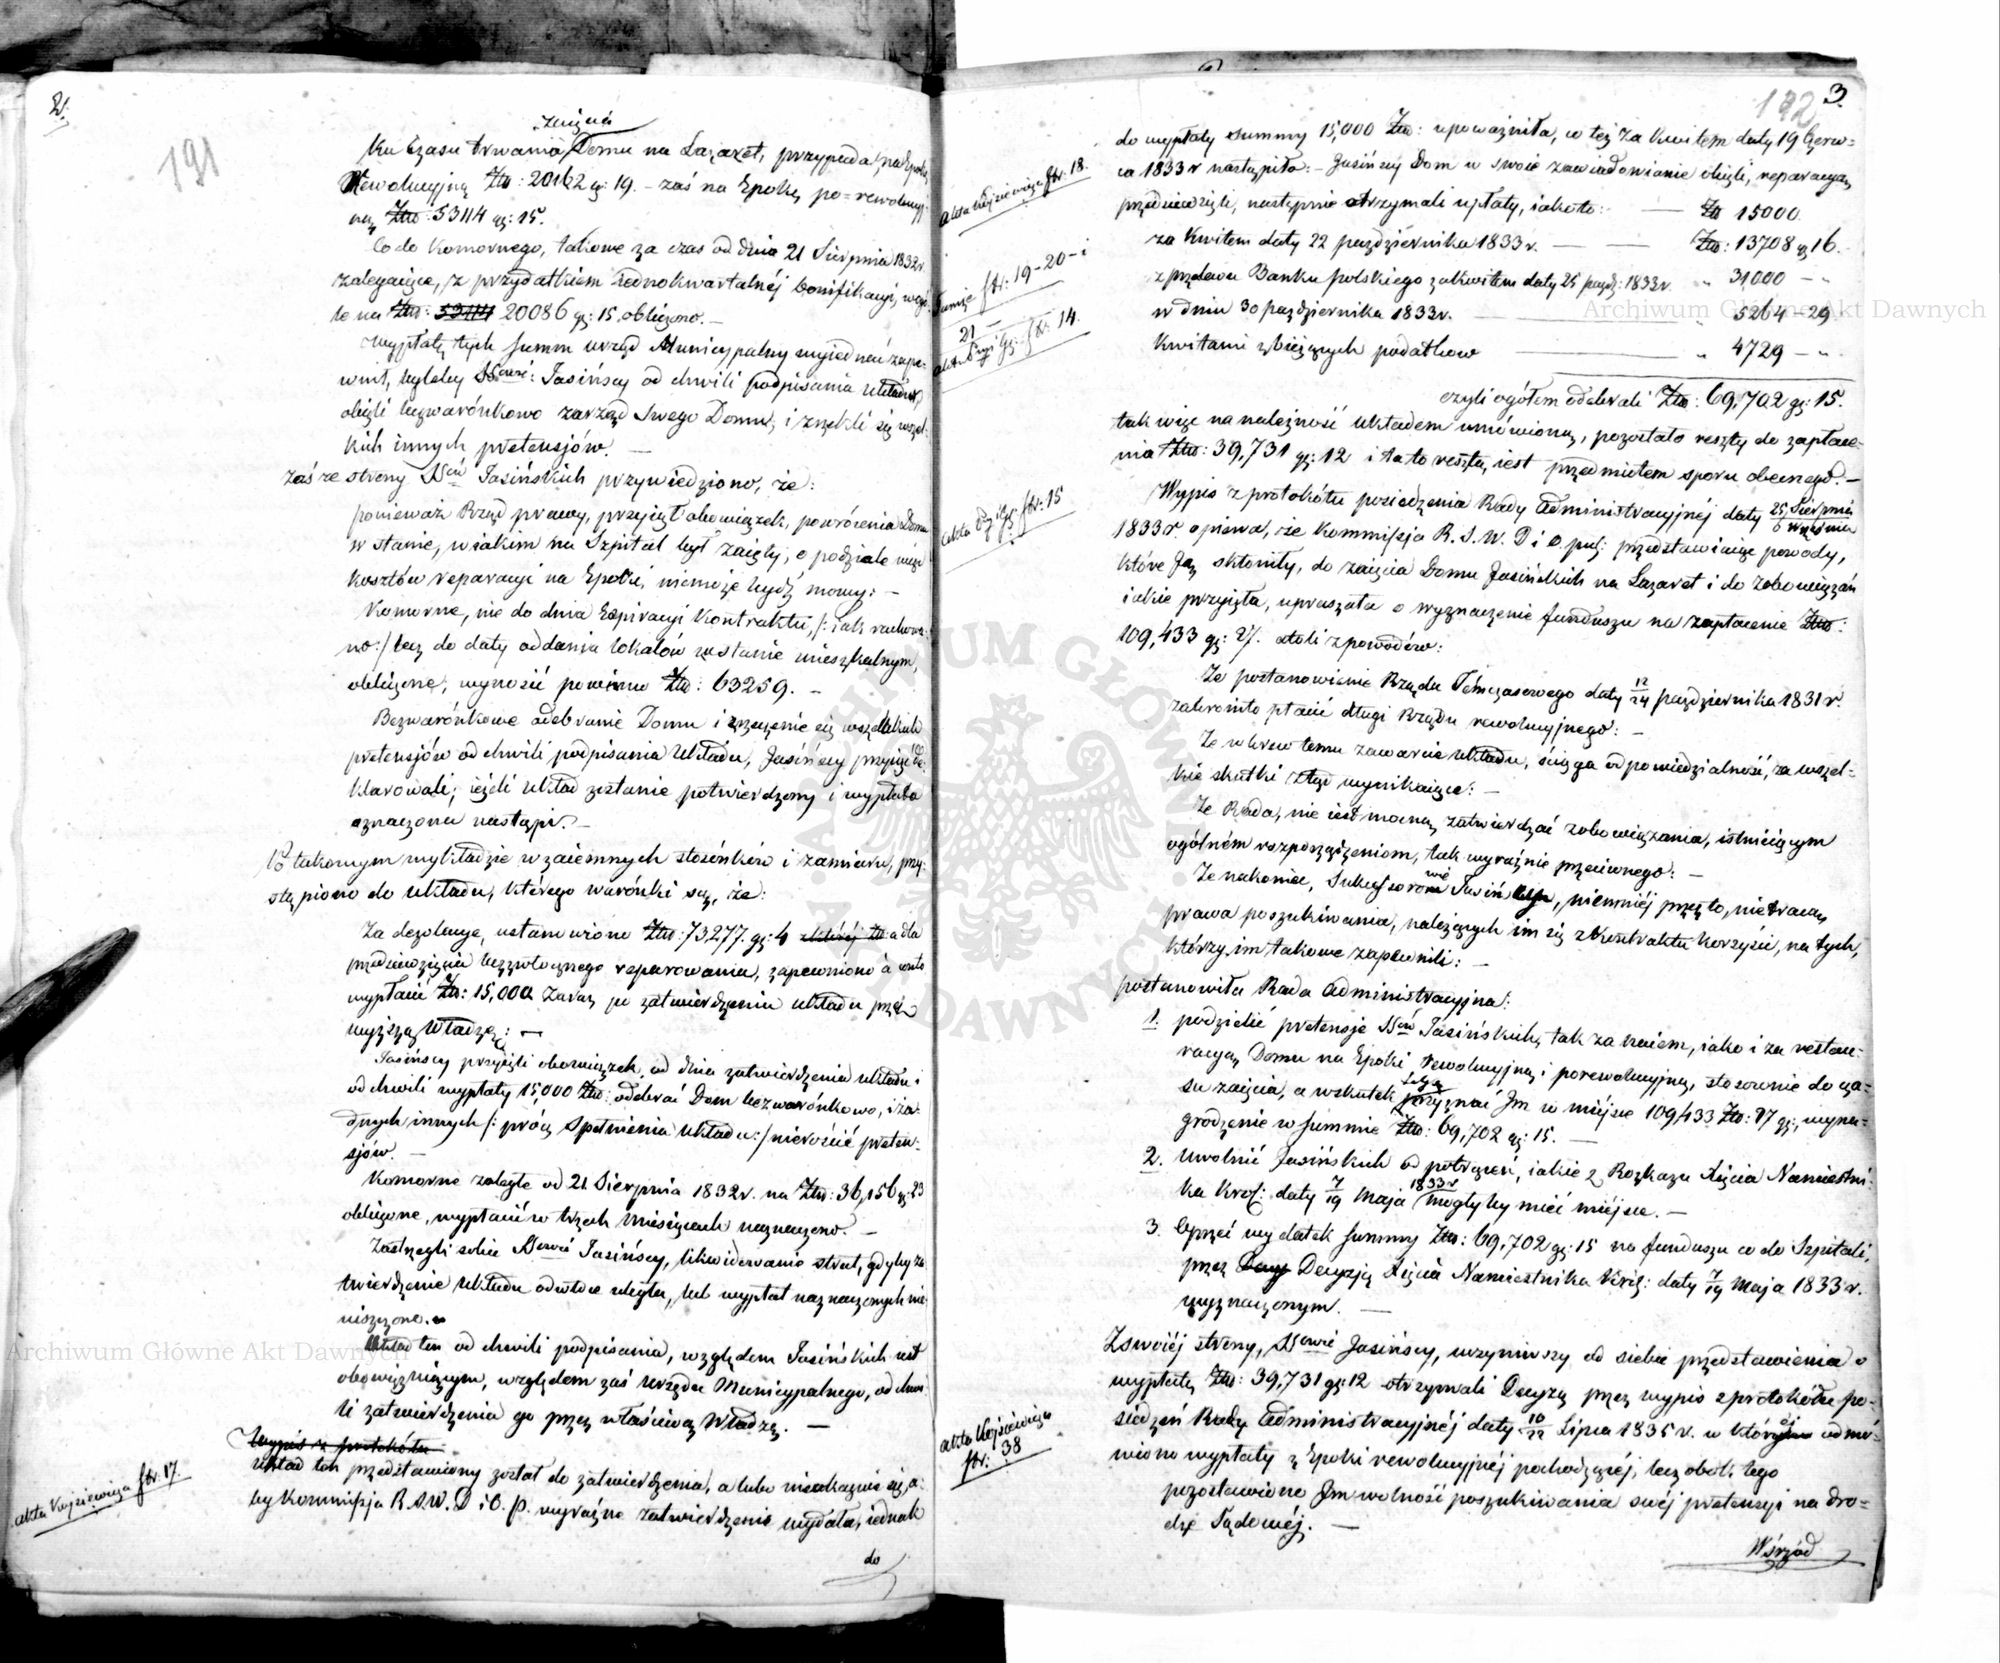 2.
191
zajęcia
ku czasu trwania Domu na Lazaret, przypada, na Epokę
Rewolucyjną Złt: 20162 gr: 19. – zaś na Epokę po=rewolucyj=
ną Złt: 53114 gr: 15.
Co do Komornego, takowe za czas od dnia 21 Sierpnia 1832 r.
zalegające, z przydatkiem jednokwartalnéj bonifikacyi, w ogó=
le na Złt: 53114 20086 gr: 15, obliczono. –
Wypłatę tych summ urząd Municypalny wyjednać zape=
wnił, byleby SSrowie: Jasińscy od chwili podpisania Układu,
objęli bezwarónkowo zarząd swego Domu, i zrzekli się wszel=
kich innych pretensjów. –
Zaś ze strony SSrów Jasińskich przywiedziono, że:
ponieważ Rząd prawy, przyjął obowiązek, powrócenia Domu
w stanie, w jakim na Szpital był zajęty, o podziale więc
kosztów reparacyi na Epoki, niemoże bydź mowy: –
Komorne, nie do dnia Expiracyi Kontraktu, /: jak rachowa=
no :/ lecz do daty oddania lokalów w stanie mieszkalnym,
obliczone, wynosić powinno Złt: 63259. –
Bezwarónkowe odebranie Domu i zrzeczenie się wszelkich
pretensjów od chwili podpisania Układu, Jasińscy przyjąć de=
klarowali; jeżeli Układ zostanie potwierdzony i wypłata
oznaczona nastąpi. –
Po takowym wykładzie wzaiemnych stosónków i zamiaru, przy=
stąpiono do Układu, którego warónki są, że:
Za dezolacye, ustanowiono Złt: 73,277. gr: 4 z którój Złt: a dla
przedsięwzięcia bezzwłocznego reparowania, zapewniono à conto
wypłacić Złt: 15,000 zaraz po zatwierdzeniu układu przez
wyższą Władzę: –
Jasińscy przyjęli obowiązek, od dnia zatwierdzenia układu i
od chwili wypłaty 15,000 Złt: odebrać Dom bezwarónkowo, i ża=
dnych innych /: prócz spełnienia Układu :/ nierościć preten=
sjów. –
Komorne zaległe od 21 Sierpnia 1832 r. na Złt: 36,156 gr: 23
obliczone, wypłacić w trzech miesiącach naznaczono. –
Zastrzegli sobie SSrowie Jasińscy, likwidowanie strat, gdyby za=
twierdzenie Układu odwłóce uległo, lub wypłat naznaczonych nie
uiszczono. –
Układ ten od chwili podpisania, względem Jasińskich jest
obowiązującym, względem zaś Urzędu Municypalnego, od chwi=
li zatwierdzenia go przez właściwą Władzę. –
Wypis z protokółu
Układ ten przedstawiony został do zatwierdzenia, a lubo nieokazuie się, a=
by Kommissja R. S. W. D. i O. P. wyraźne zatwierdzenie wydała, jednak
akta Kojsiewicza str. 17.
do
192
3.
do wypłaty summy 15,000 Złt: upoważniła, co też za Kwitem daty 19 Czerw=
ca 1833 r nastąpiło: – Jasińscy Dom w swoie zawiadowianie objęli, reparacyą
przedsięwzięli, następnie otrzymali wypłaty, jako to: – Zł 15000.
akta Kojsiewicza str. 18.
za Kwitem daty 22 października 1833 r. – – Złt: 13708 gr 16.
z przelewu Banku polskiego za kwitem daty 25 paźdz: 1833 r. „ 31,000 – „
akta tamże str: 19 – 20 – i
21 –
w dniu 30 października 1833 r. – „ 5264 – 29.
str. 14.
Kwitami z bieżących podatków – „ 4729 – „
czyli ogółem odebrali Złt: 69,702 gr: 15.
tak więc na należność układem umówioną, pozostało reszty do zapłace=
nia Złt: 39,731 gr: 12 i ta to reszta, jest przedmiotem sporu obecnego. –
akta str. 15
Wypis z protokółu posiedzenia Rady Administracyjnéj daty 25 Sierpnia / 6 Września
1833 r. opiewa, że Kommissja R. S. W. D i O. pub: przedstawiając powody,
które Ją skłoniły, do zajęcia Domu Jasińskich na Lazaret i do zobowiązań
jakie przyięła, upraszała o wyznaczenie funduszu na zapłacenie Złt:
109,433 gr: 27. atoli z powodów:
Że postanowienie Rządu Tymczasowego daty 12/24 października 1831 r.
zabroniło płacić długi Rządu rewolucyjnego: –
Że wbrew temu zawarcie układu, ściąga odpowiedzialność, za wszel=
kie skutki ztąd wynikające: –
Że Rada, nie jest mocną, zatwierdzać zobowiązania, istniejącym
ogólném rozporządzeniom, tak wyraźnie przeciwnego: –
Że nakoniec, Sukcessorowie Jasińscy, niemniéj przez to, nie tracą
prawa poszukiwania, należących im się z Kontraktu korzyści, na tych,
którzy im takowe zapewnili: –
postanowiła Rada Administracyjna:
1. podzielić pretensje SSrów Jasińskich, tak za naiem, jako i za restau=
racyą Domu na Epoki rewolucyjną i porewolucyjną, stosownie do cza=
su zajęcia, a wskutek tego przyznać Jm w miejsce 109,433 Złt: 27 gr:, wyna=
grodzenie w summie Złt: 69,702 gr: 15. –
2. uwolnić Jasińskich od potrąceń, jakie z Rozkazu Xięcia Namiestni=
ka Król: daty 7/19 Maja 1833 r mogłyby mieć miéjsce. –
3. Oprzeć wydatek summy Złt: 69,702 gr: 15 na funduszu co do Szpitali,
przez Decyzją Xięcia Namiestnika Król: daty 7/19 Maja 1833 r.
wyznaczonym. –
Z swoiéj strony, SSrowie Jasińscy, uczyniwszy od siebie przedstawienia o
wypłatę Złt: 39,731 gr: 12 otrzymali Decyzą przez wypis z protokółu po=
siedzeń Rady Administracyjnéj daty 10/22 Lipca 1835 r. w któréj odmó=
wiono wypłaty z Epoki rewolucyjnéj pochodzącéj, lecz obok tego
pozostawiono Jm wolność poszukiwania swéj pretensyi na dro=
dze Sądowéj. –
akta Kojsiewicza
str: 38
Wśród